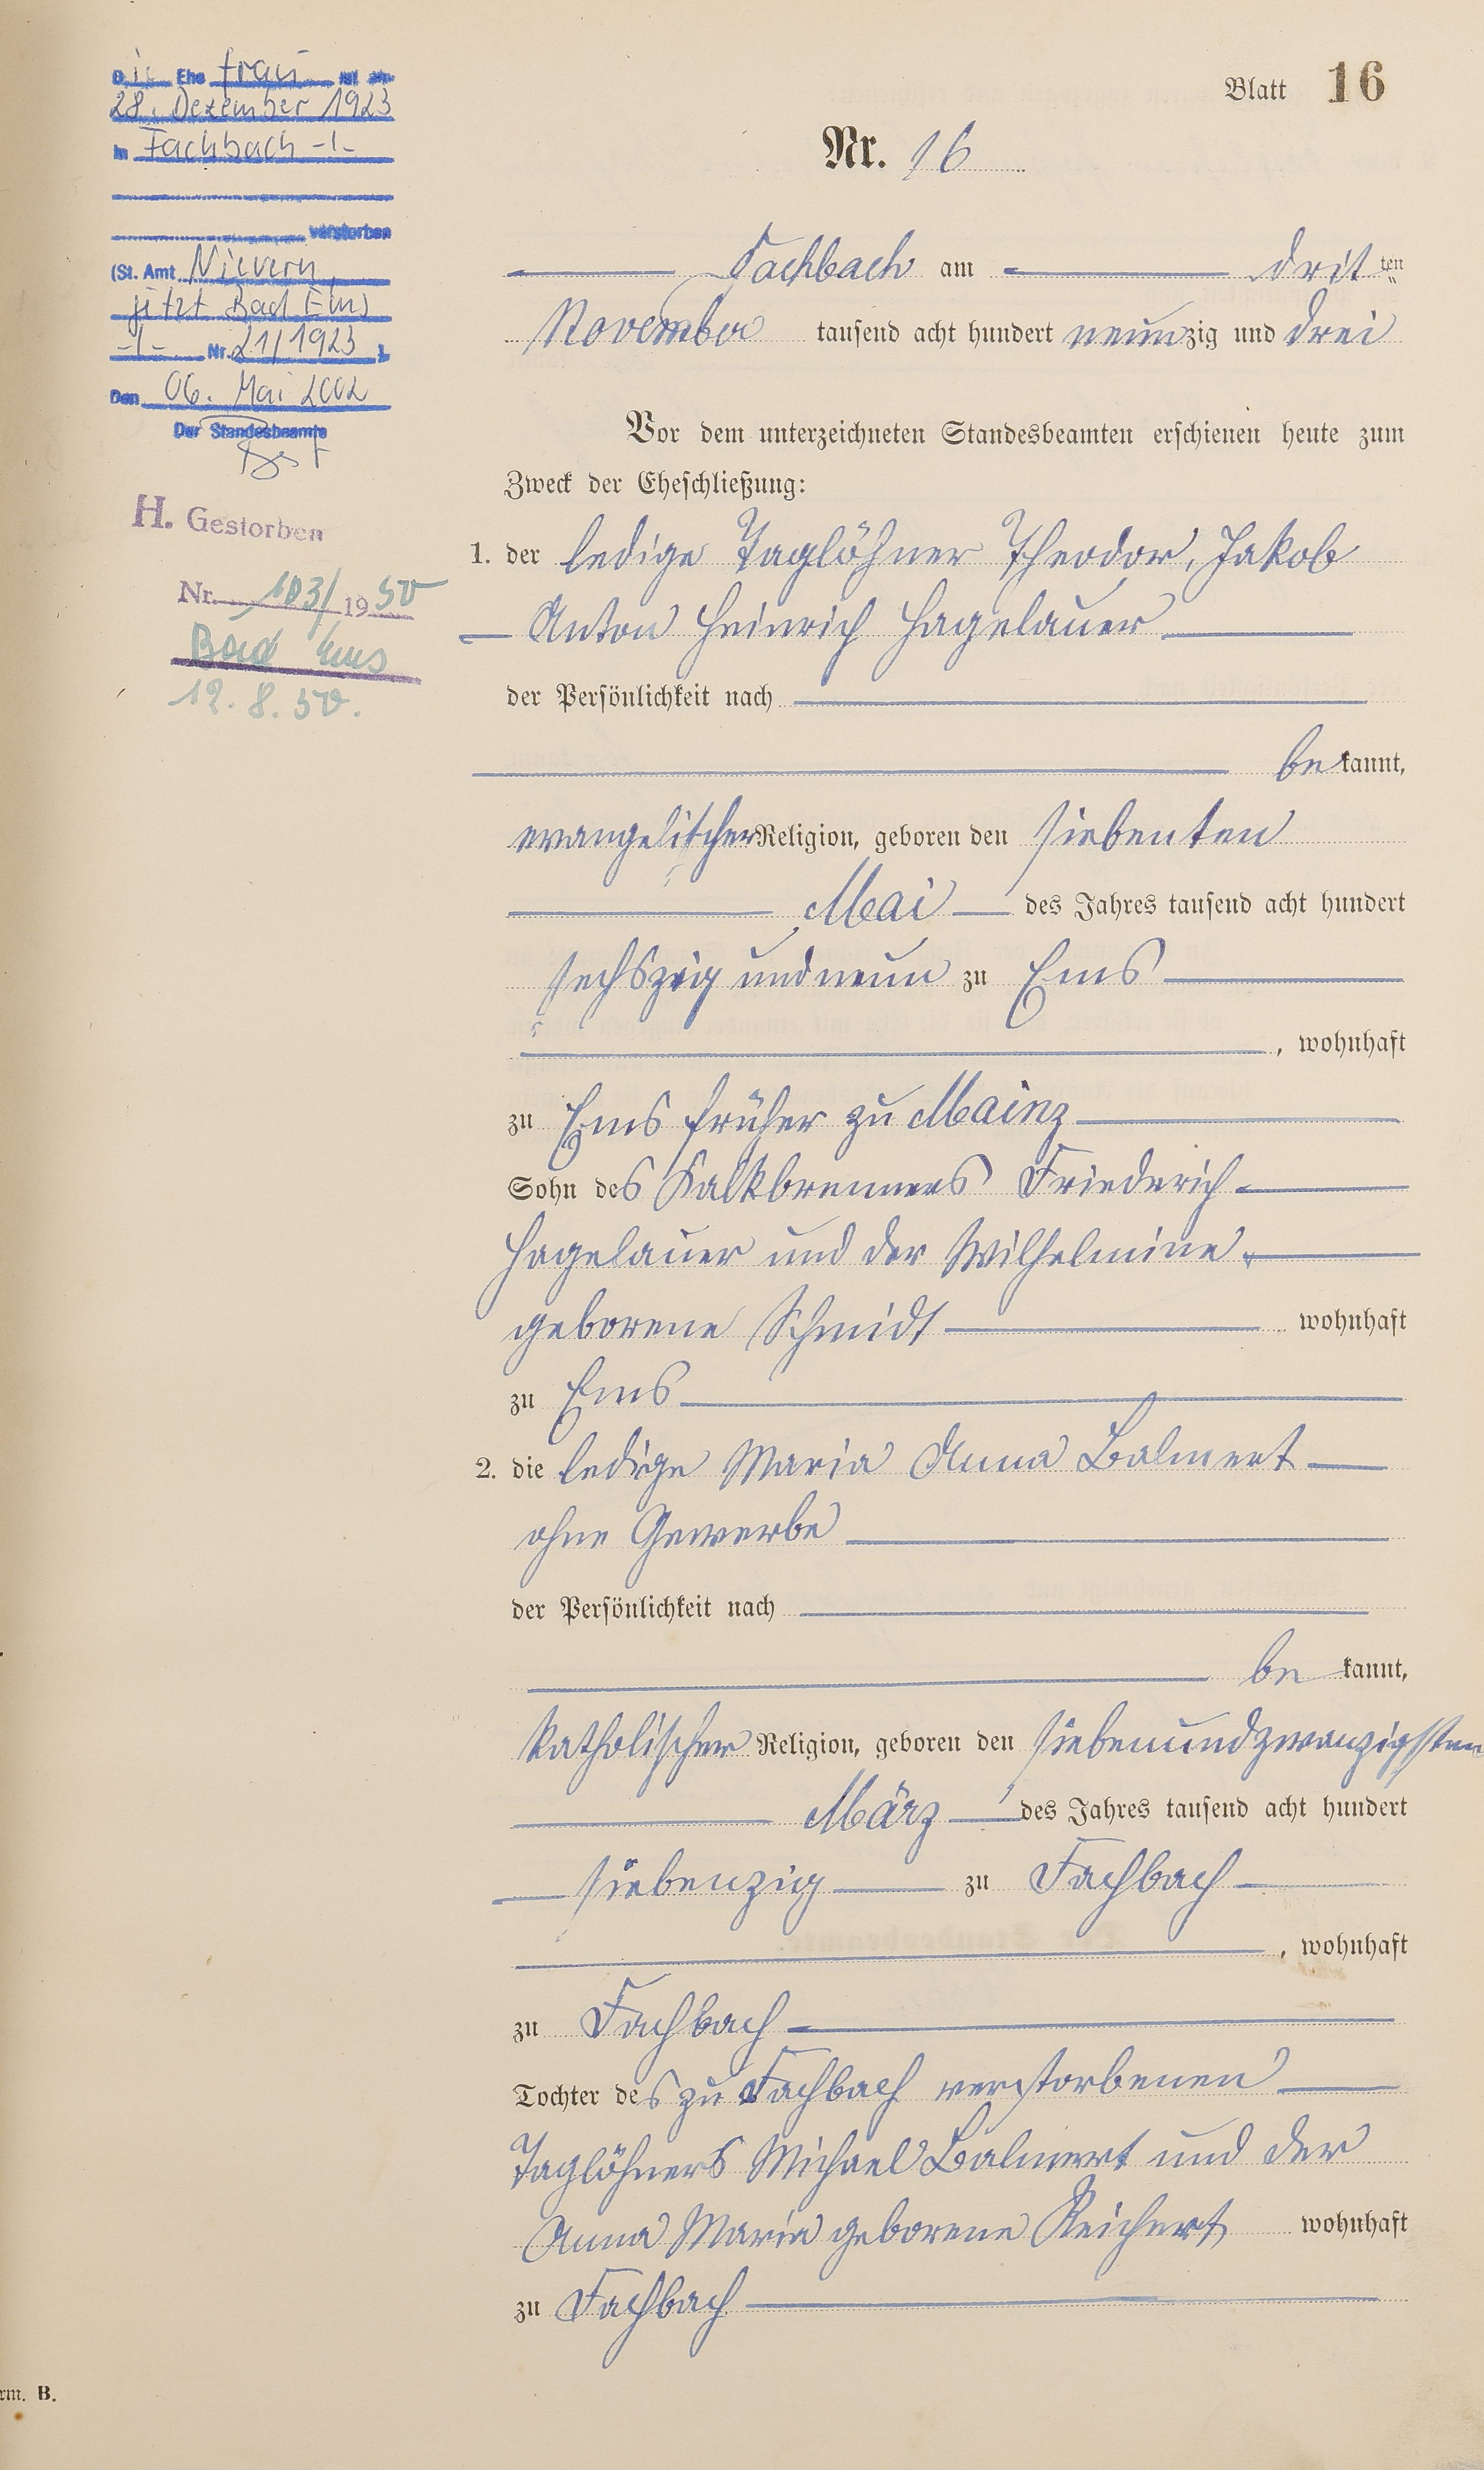 Die Ehefrau ist am
28. Dezember 1923
in Fachbach -/-
verstorben
(St. Amt Nievern
jetzt Bad Ems
-/- Nr. 21/1923 ).
Den 06. Mai 2002
Der Standesbeamte
H. Gestorben
Nr. 103/1950
Bad Ems
12. 8. 50.
Blatt 16
Nr. 16
Fachbach am dritten
November tausend acht hundert neunzig und drei
Vor dem unterzeichneten Standesbeamten erschienen heute zum
Zweck der Eheschließung:
1. der ledige Taglöhner Theodor, Jakob
Anton Heinrich Hagelauer
der Persönlichkeit nach
bekannt,
evangelischer Religion, geboren den siebenten
Mai des Jahres tausend acht hundert
sechszig und neun zu Ems
, wohnhaft
zu Ems früher zu Mainz
Sohn des Kalkbrenners Friederich
Hagelauer und der Wilhelmine
geborene Schmidt wohnhaft
zu Ems
2. die ledige Maria Anna Balmert
ohne Gewerbe
der Persönlichkeit nach
bekannt,
katholischer Religion, geboren den siebenundzwanzigsten
März des Jahres tausend acht hundert
siebenzig zu Fachbach
, wohnhaft
zu Fachbach
Tochter des zu Fachbach verstorbenen
Taglöhners Michael Balmert und der
Anna Maria geborene Reichert wohnhaft
zu Fachbach
rm. B.